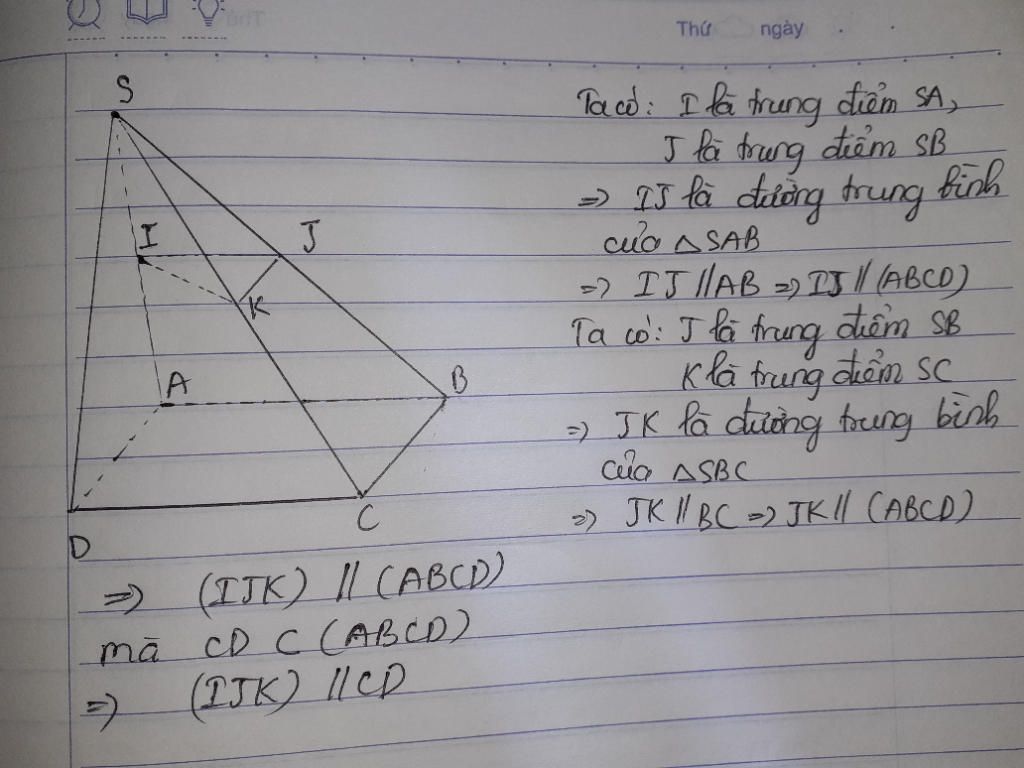 Thứ ngày
S
I
J
K
A
B
C
D
Ta có: I là trung điểm SA,
J là trung điểm SB
=> IJ là đường trung bình
của △SAB
=> IJ // AB => IJ // (ABCD)
Ta có: J là trung điểm SB
K là trung điểm SC
=> JK là đường trung bình
của △SBC
=> JK // BC => JK // (ABCD)
=> (IJK) // (ABCD)
mà CD ⊂ (ABCD)
=> (IJK) // CD